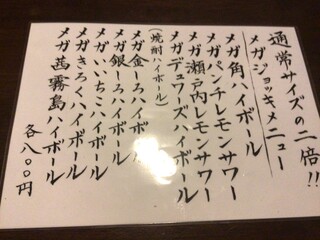 通常サイズの二倍!!
メガジョッキメニュー
メガ角ハイボール
メガパンチレモンサワー
メガ瀬戸内レモンサワー
メガデュワーズハイボール
(焼酎ハイボール)
メガ金しろハイボール
メガ銀しろハイボール
メガいいちこハイボール
メガきろくハイボール
メガ茜霧島ハイボール
各八〇〇円